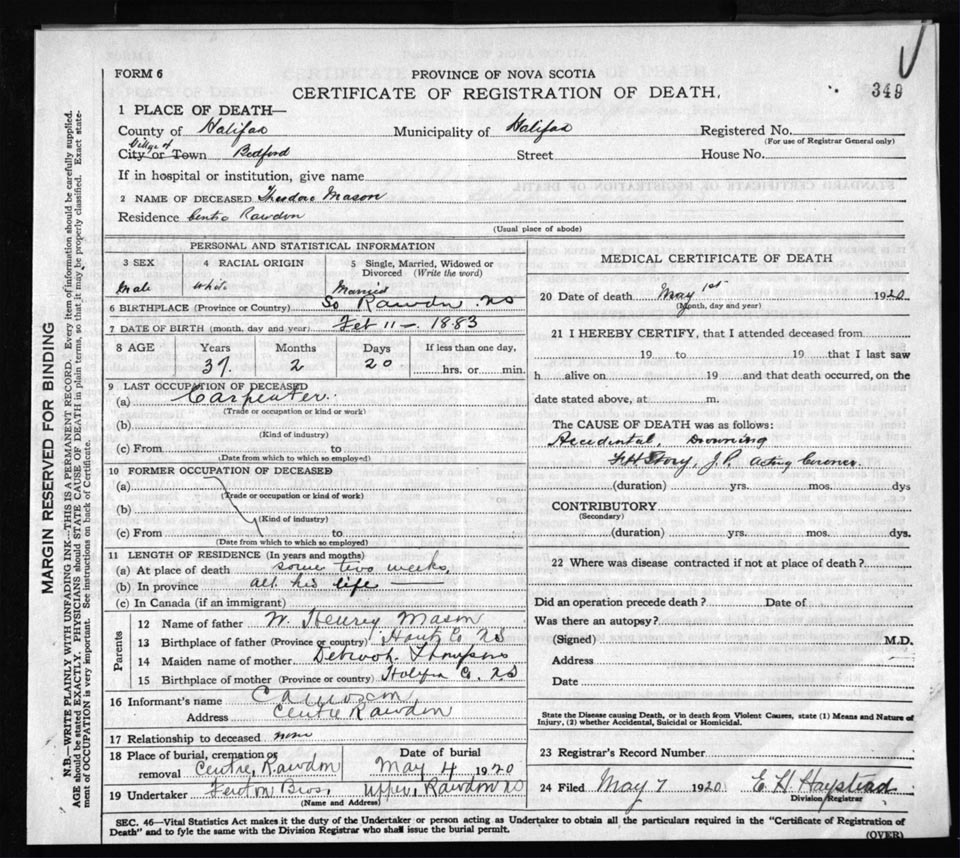 FORM 6
PROVINCE OF NOVA SCOTIA
CERTIFICATE OF REGISTRATION OF DEATH.
349
1 PLACE OF DEATH—
County of Halifax Municipality of Halifax Registered No.
(For use of Registrar General only)
Village of
City or Town Bedford Street House No.
If in hospital or institution, give name
2 NAME OF DECEASED Theodore Mason
Residence Centre Rawdon
(Usual place of abode)
PERSONAL AND STATISTICAL INFORMATION
3 SEX 4 RACIAL ORIGIN 5 Single, Married, Widowed or Divorced (Write the word)
Male White Married
6 BIRTHPLACE (Province or Country) So Rawdon NS
7 DATE OF BIRTH (month, day and year) Feb 11 — 1883
8 AGE Years Months Days If less than one day,
37 2 20 hrs. or min.
9 LAST OCCUPATION OF DECEASED
(a) Carpenter
(Trade or occupation or kind or work)
(b)
(Kind of industry)
(c) From to
(Date from which to which so employed)
10 FORMER OCCUPATION OF DECEASED
(a)
(Trade or occupation or kind or work)
(b)
(Kind of industry)
(c) From to
(Date from which to which so employed)
11 LENGTH OF RESIDENCE (In years and months)
(a) At place of death some two weeks
(b) In province all his life
(c) In Canada (if an immigrant)
Parents
12 Name of father W. Henry Mason
13 Birthplace of father (Province or country) Hants Co NS
14 Maiden name of mother Thompson
15 Birthplace of mother (Province or country) Halifax Co. NS
16 Informant's name
Address Centre Rawdon
17 Relationship to deceased none
18 Place of burial, cremation or removal Centre, Rawdon Date of burial May 4 1920
19 Undertaker Fenton Bros, Upper Rawdon NS
(Name and Address)
MEDICAL CERTIFICATE OF DEATH
20 Date of death May 1st 1920
(Month, day and year)
21 I HEREBY CERTIFY, that I attended deceased from
19 to 19 that I last saw
h alive on 19 and that death occurred, on the
date stated above, at m.
The CAUSE OF DEATH was as follows:
Accidental, Drowning
J.P. Acting Coroner.
(duration) yrs. mos. dys
CONTRIBUTORY
(Secondary)
(duration) yrs. mos. dys.
22 Where was disease contracted if not at place of death?
Did an operation precede death? Date of
Was there an autopsy?
(Signed) M.D.
Address
Date
State the Disease causing Death, or in death from Violent Causes, state (1) Means and Nature of
Injury, (2) whether Accidental, Suicidal or Homicidal.
23 Registrar's Record Number
24 Filed May 7 1920 E H Haystead
Division Registrar
SEC. 46—Vital Statistics Act makes it the duty of the Undertaker or person acting as Undertaker to obtain all the particulars required in the "Certificate of Registration of
Death" and to fyle the same with the Division Registrar who shall issue the burial permit.
(OVER)
MARGIN RESERVED FOR BINDING
N.B.—WRITE PLAINLY WITH UNFADING INK—THIS IS A PERMANENT RECORD. Every item of information should be carefully supplied.
AGE should be stated EXACTLY. PHYSICIANS should STATE CAUSE OF DEATH in plain terms, so that it may be properly classified. Exact state-
ment of OCCUPATION is very important. See instructions on back of Certificate.